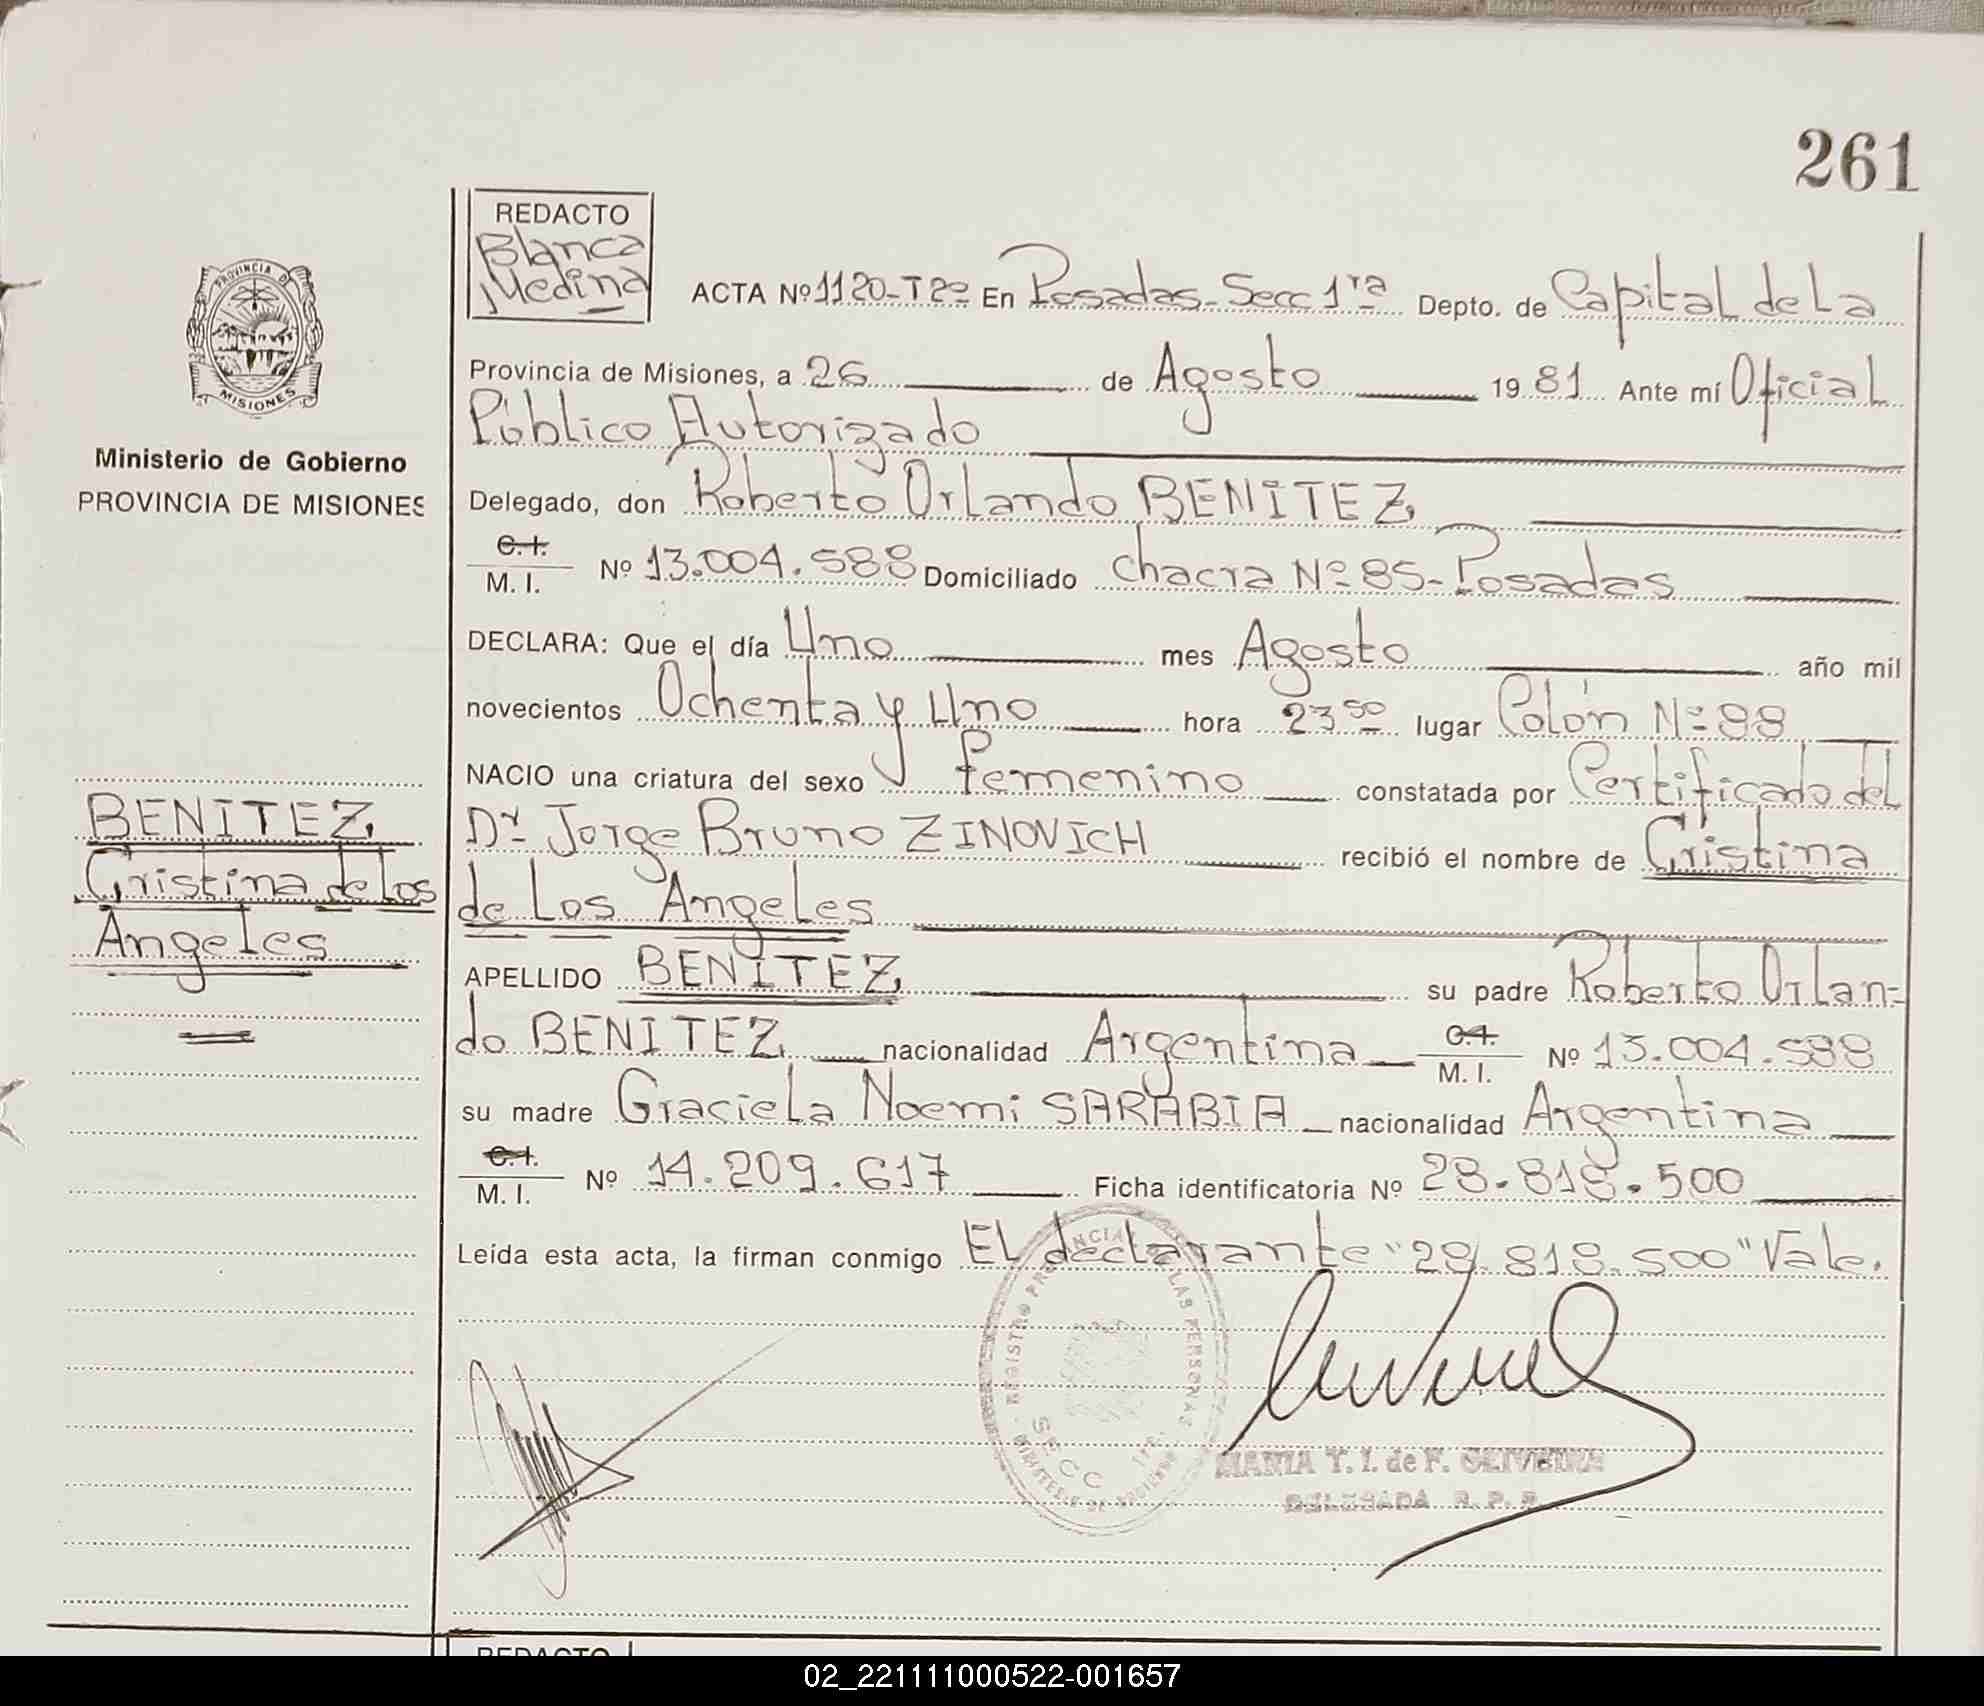 261
REDACTO
Blanca
Medina
ACTA Nº 1120-T2º En Posadas-Secc 1ra Depto. de Capital de La
Provincia de Misiones, a 26 de Agosto 1981 Ante mí Oficial
Público Autorizado
Delegado, don Roberto Orlando BENITEZ
C.I.
M. I. Nº 13.004.588 Domiciliado chacra Nº 85-Posadas
DECLARA: Que el día Uno mes Agosto año mil
novecientos Ochenta y Uno hora 23 50 lugar Colón Nº 88
NACIO una criatura del sexo femenino constatada por Certificado del
Dr Jorge Bruno ZINOVICH recibió el nombre de Cristina
de Los Angeles
APELLIDO BENITEZ su padre Roberto Orlan-
do BENITEZ nacionalidad Argentina C.I.
M. I. Nº 13.004.588
su madre Graciela Noemi SARABIA nacionalidad Argentina
C.I.
M. I. Nº 14.209.617 Ficha identificatoria Nº 28.818.500
Leída esta acta, la firman conmigo EL declarante "28.818.500" Vale.
PROVINCIA DE
MISIONES
Ministerio de Gobierno
PROVINCIA DE MISIONES
BENITEZ
Cristina de Los
Angeles
REGISTRO PROVINCIAL DE LAS PERSONAS
SECC 1ra.
MINISTERIO DE GOBIERNO
MARIA T. I. de F. OLIVEIRA
DELEGADA R. P. P.
REDACTO
02_221111000522-001657